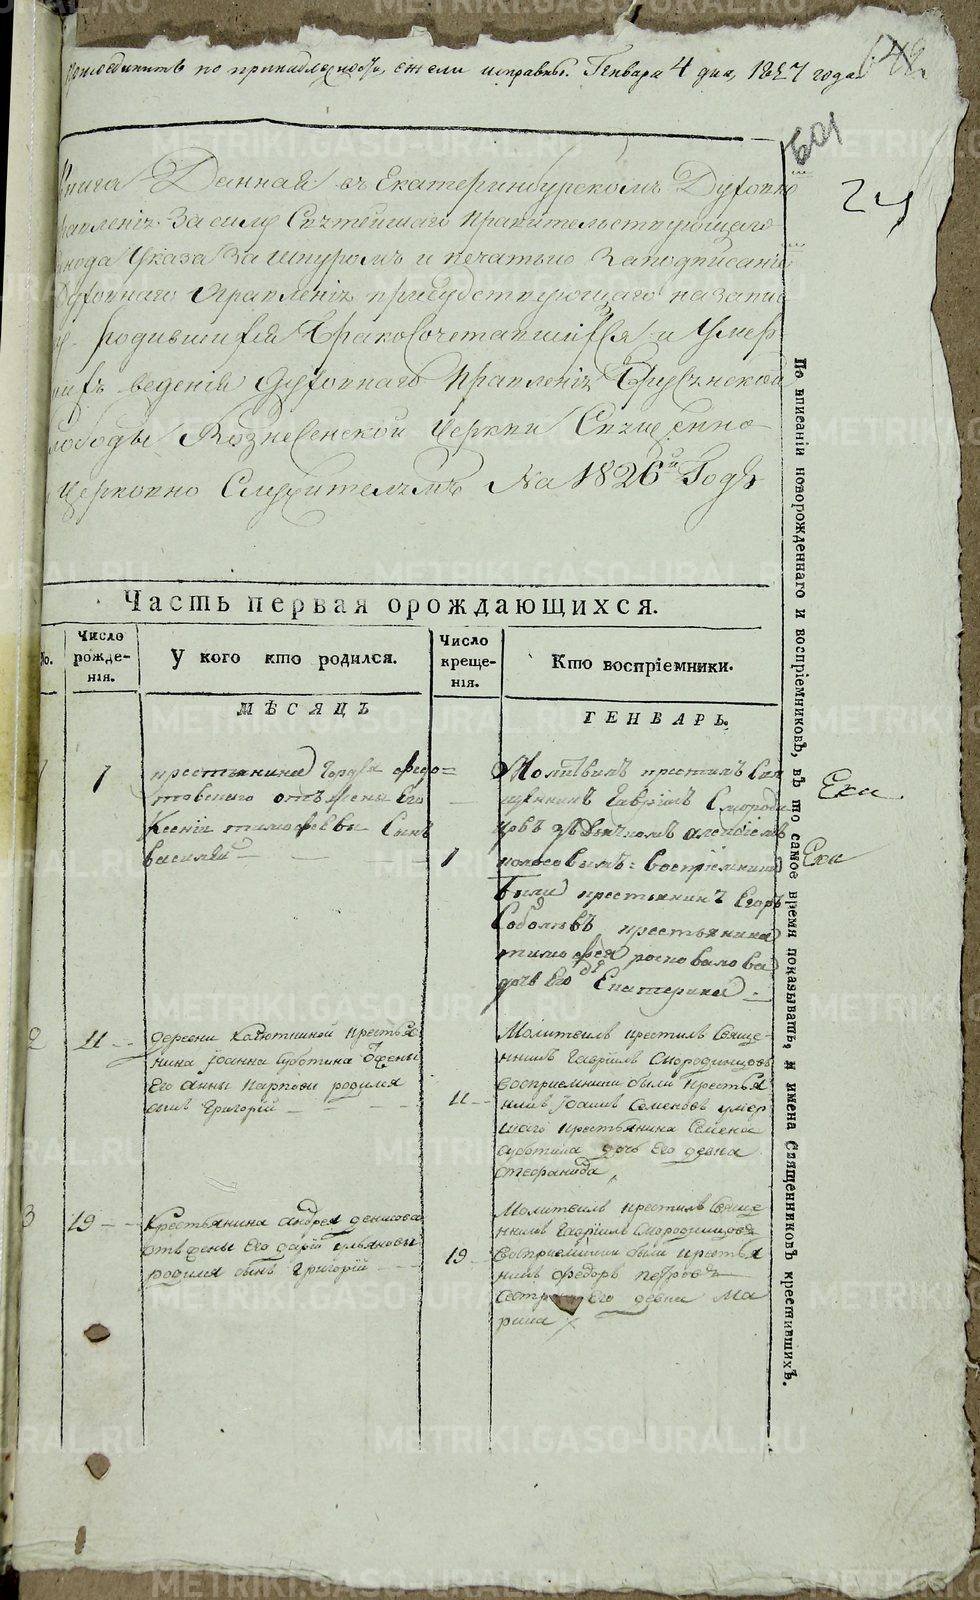 по принадлежности, ежели исправны. Генваря 4 дня, 1827 года
601
24
Книга Данная въ Екатеринбурскомъ Духовно
правленіи Засилу Святейшаго Правительствующаго
Синода Указа За шнуромъ и печатью Заподписаніе
Духовнаго Правленія присудствующаго назапис
родившихся Бракосочетавшихся и Умер
шихъ веденія Духовнаго Правленія
Слободы Вознесенской Церкви Священно
Церковно Служителямъ На 1826й Годъ
Часть первая орождающихся.
No.
Число рожде-нія.
У кого кто родился.
Число креще-нія.
Кто воспріемники.
МѢСЯЦЪ
ГЕНВАРЬ.
1
крестьянина Федо=
отъ жены Его
Ксеніи тимофеевы Сынъ
василий
1
Молитвилъ крестилъ Свя
щенникъ Гавріилъ Смороди
алексіемъ
колосовымъ: воспріемники
были крестьянинъ Егоръ
Соболевъ крестьянина
тимофея
дочь Его Екатерина
Ека
Ека
2
11
деревни крестья
нина Іоанна Суботина Жены
Его Анны Карповы родился
сынъ Григорій
11
Молитвилъ крестилъ Свяще
нникъ Гавріилъ Смородинцовъ
восприемники были крестья
нинъ Іоаннъ Семеновъ умер
шаго крестьянина Семена
Суботина дочь Его девка
Стефанида
3
19
Крестьянина Андрея денисова
отъ жены Его дарьи ульяновы
родился сынъ Григорій
19
Молитвилъ крестилъ Свяще
нникъ Гавріилъ Смородинцовъ
Восприемники были крестья
нинъ Федоръ Петровъ
Сестра Его девка Ма
рина
По вписаніи новорожденнаго и воспріемниковъ, въ то самое время показывать, и имена Священниковъ крестившихъ.
METRIKI.GASO-URAL.RU